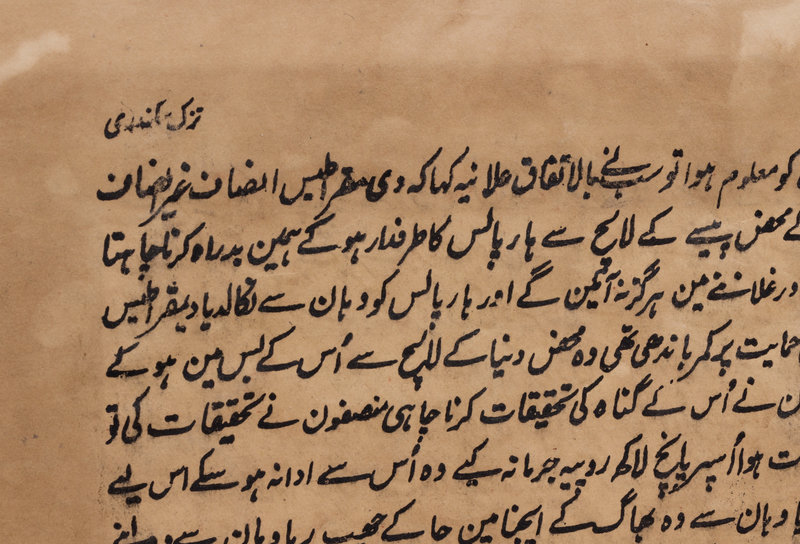 تزک سکندری
کو معلوم ہوا تو سب نے بالاتفاق علانیہ کہا کہ دی مقراطیس انصاف غیر انصاف
محض پیسے کے لالچ سے ہارپالس کا طرفدار ہو کے ہمین بدراہ کرنا چاہتا
ورغلاننے مین ہرگز نہ آئین گے اور ہارپالس کو وہان سے نکالدیا دیمقراطیس
حمایت پر کمر باندھی تھی وہ محض دنیا کے لالچ سے اُس کے بس مین ہو کے
نے اُس کے گناہ کی تحقیقات کرنا چاہی منصفون نے تحقیقات کی تو
ہوا اُسپر پانچ لاکھ روپیہ جرمانہ کیے وہ اُس سے ادا نہ ہو سکے اس لیے
وہان سے وہ بھاگ کے ایجنا مین جا کے چھپ رہا وہان سے